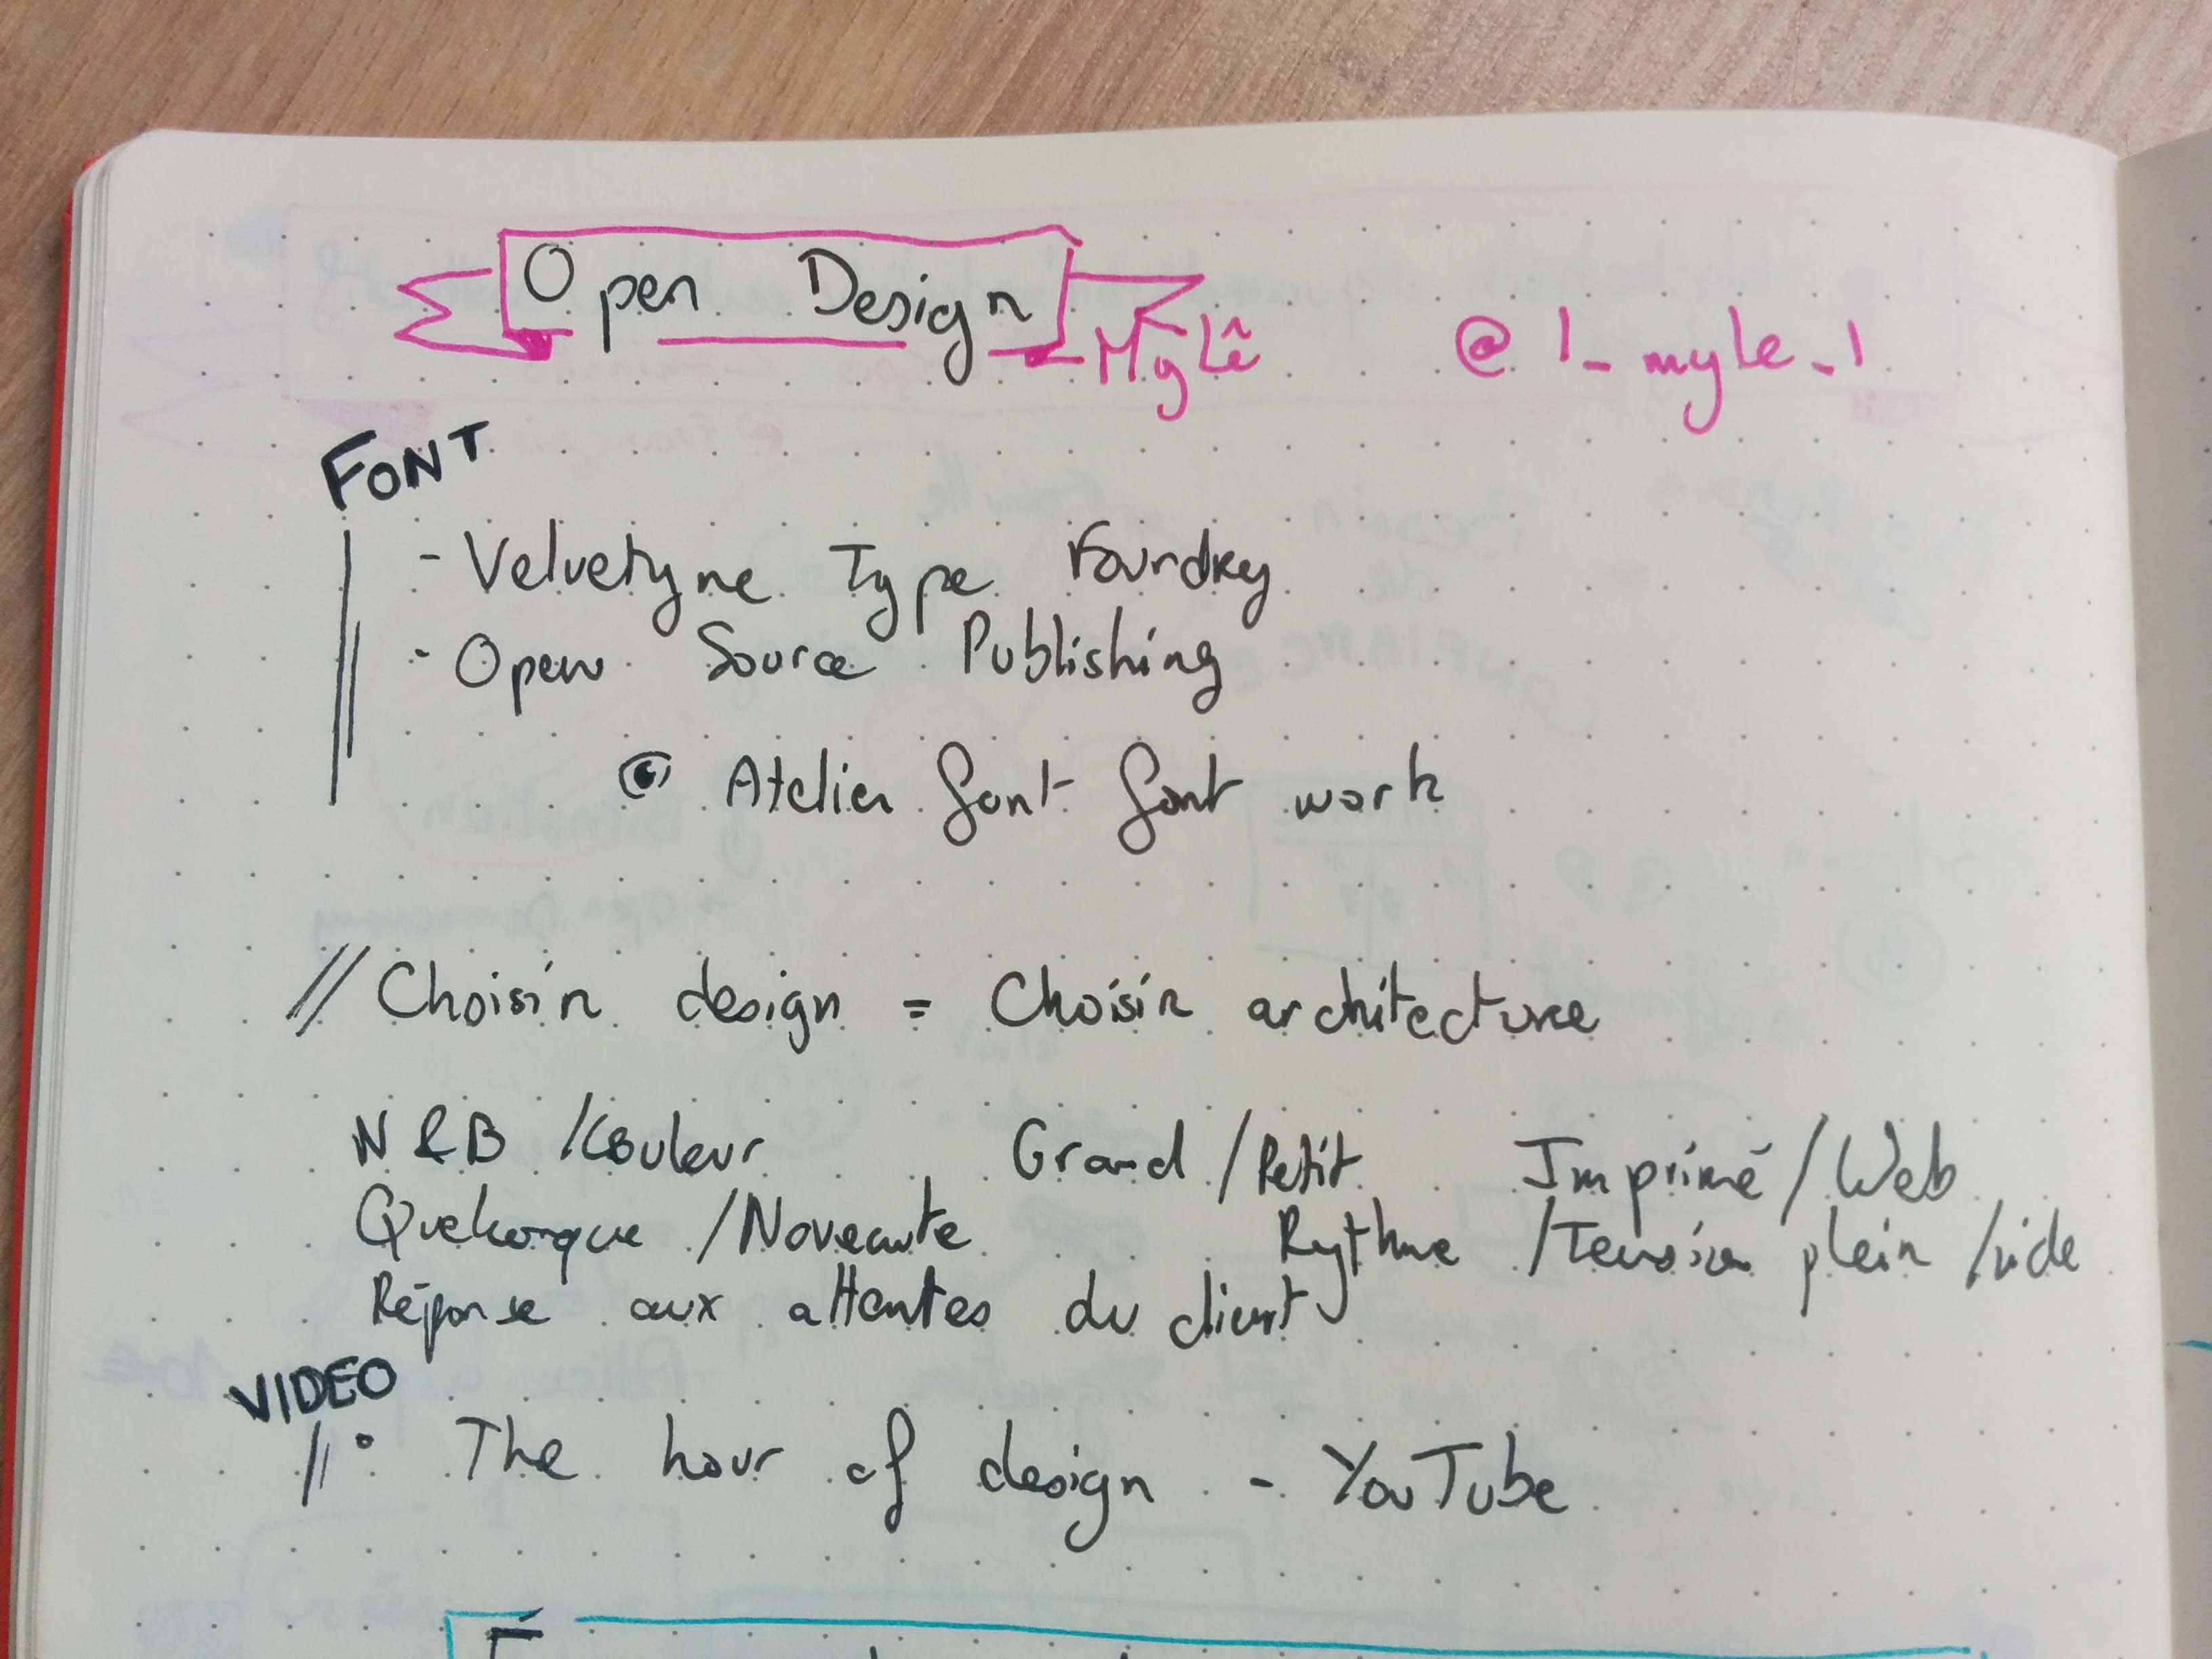 Open Design
My Lê @l_myle_l
FONT
- Velvetyne Type Foundry
- Open Source Publishing
Atelier font font work
// Choisir design = Choisir architecture
N&B / Couleur Grand / Petit Imprimé / Web
Quelconque / Noveaute Rythme / Tension plein / vide
Réponse aux attentes du client
VIDEO
// ° The hour of design - YouTube